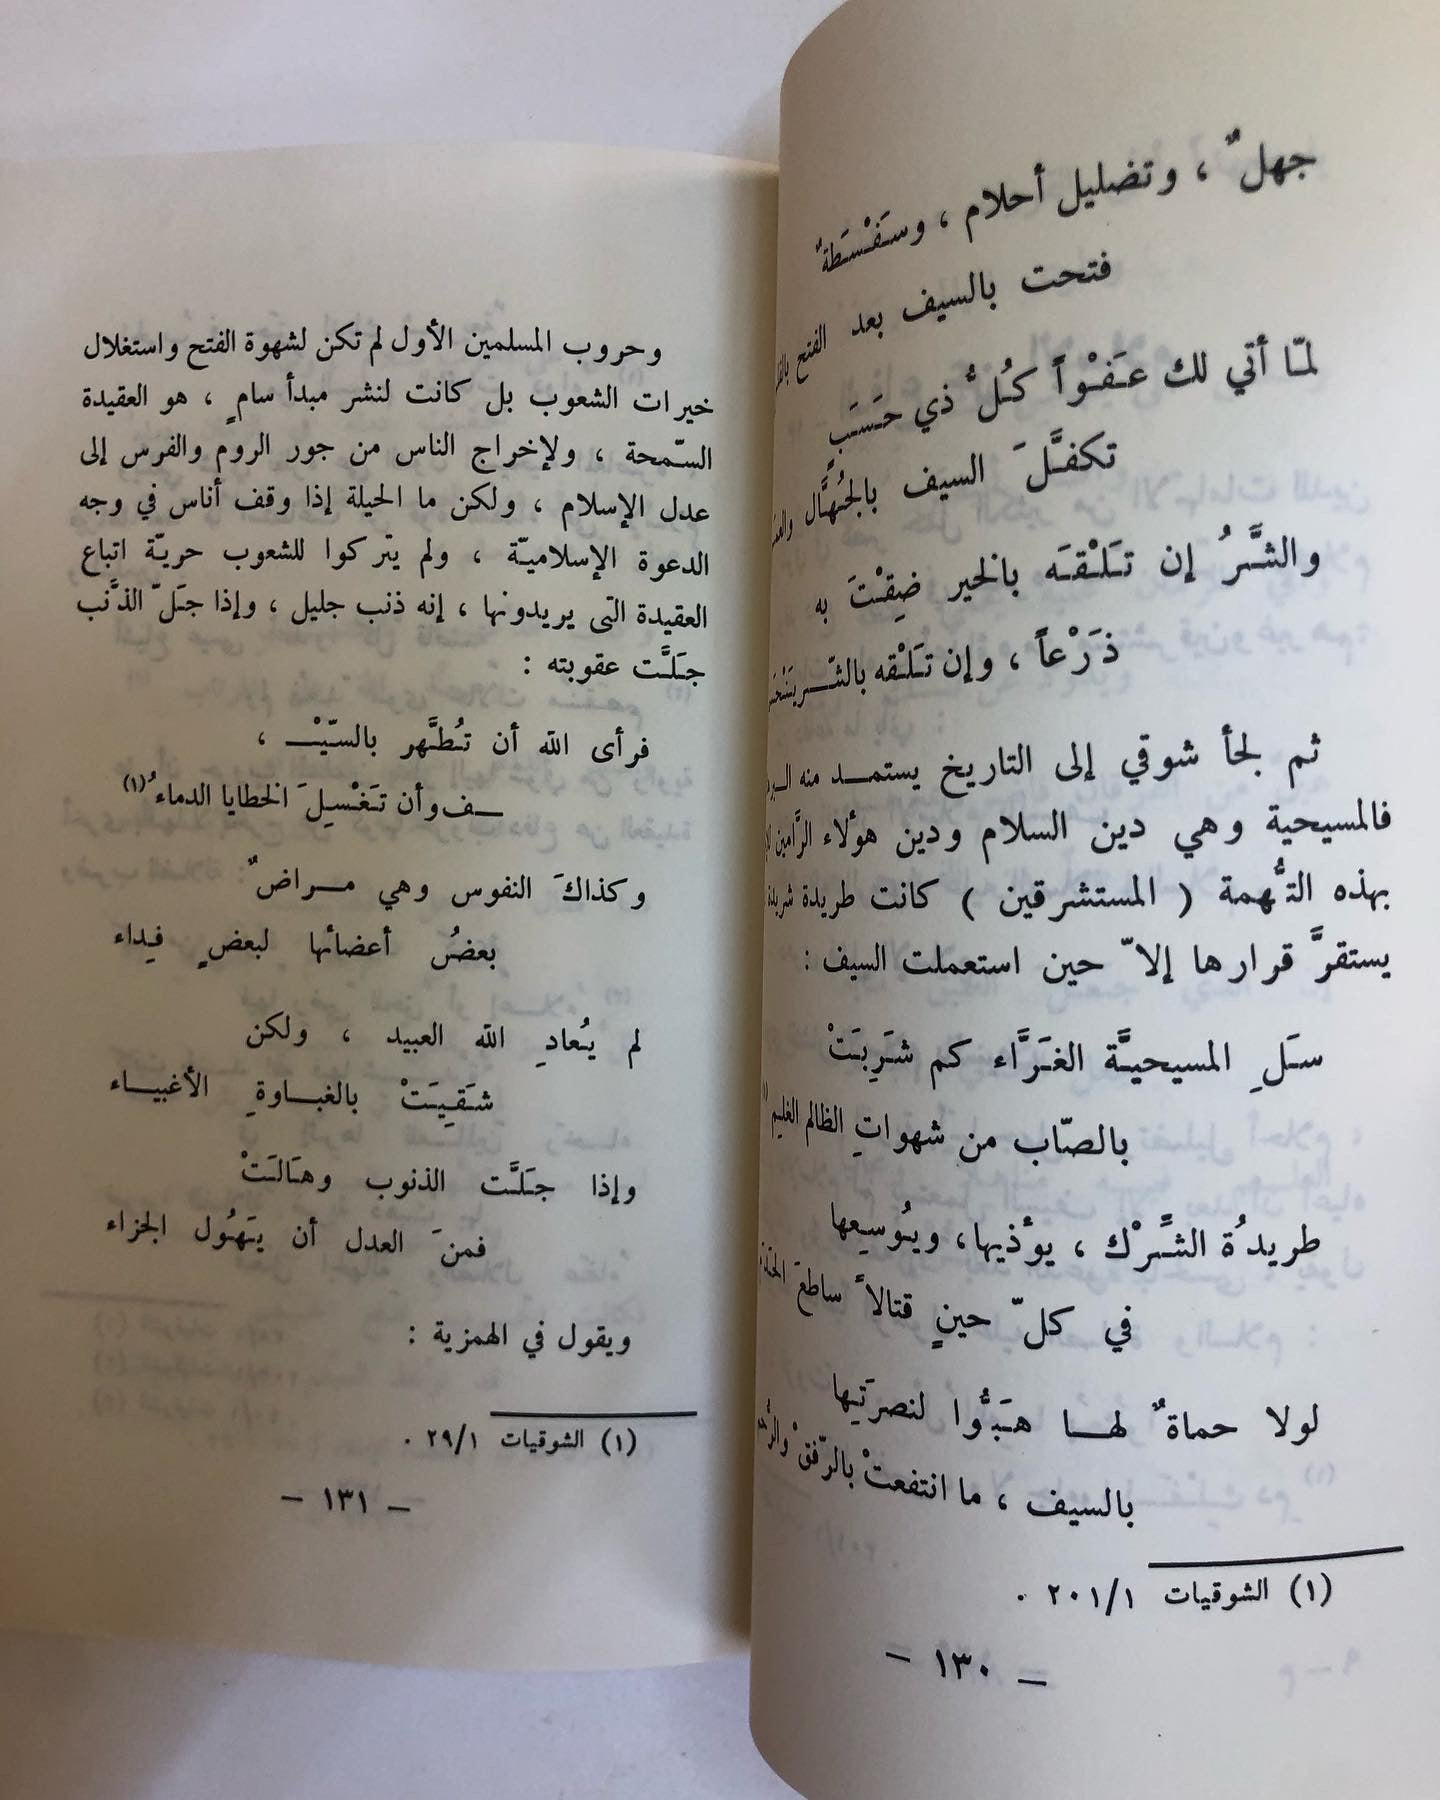 جهلٌ ، وتضليل أحلام ، وسَفْسَطةٌ
فتحت بالسيف بعد الفتح
لمّا أتي لك عَفْواً كُلُّ ذي حَسَبَ
تكفَّلَ السيف بالجُهَّال
والشَّرُ إن تَلْقَه بالخير ضِقْتَ به
ذَرْعاً ، وإن تَلْقه بالشّر
ثم لجأ شوقي إلى التاريخ يستمد منه
فالمسيحية وهي دين السلام ودين هؤلاء الرَّامين
بهذه التُّهمة ( المستشرقين ) كانت طريدة شريدة
يستقرَّ قرارها إلاّ حين استعملت السيف :
سَلِ المسيحيَّة الغَرَّاء كم شَرِبَتْ
بالصّاب من شهواتِ الظالم الغلِم (١)
طريدُة الشَّرْك ، يؤذيها، ويُوسِعها
في كلّ حينٍ قتالاً ساطعَ
لولا حماةٌ لها هَبُّوا لنصرَتِها
بالسيف ، ما انتفعتْ بالرّفقْ
(١) الشوقيات ٢٠١/١ .
– ١٣٠ –
وحروب المسلمين الأول لم تكن لشهوة الفتح واستغلال
خيرات الشعوب بل كانت لنشر مبدأ سامٍ ، هو العقيدة
السّمحة ، ولإخراج الناس من جور الروم والفرس إلى
عدل الإسلام ، ولكن ما الحيلة إذا وقف أناس في وجه
الدعوة الإسلاميّة ، ولم يتركوا للشعوب حريّة اتباع
العقيدة التى يريدونها ، إنه ذنب جليل ، وإذا جَلّ الذَّنب
جَلَّت عقوبته :
فرأى الله أن تُطهَّر بالسّيْـ ،
ـف وأن تَغْسِلَ الخطايا الدماءُ (١)
وكذاكَ النفوس وهي مراضٌ
بعضُ أعضائها لبعضٍ فِداء
لم يُعادِ الله العبيد ، ولكن
شَقِيَتْ بالغباوةِ الأغبياء
وإذا جَلَّت الذنوب وهَالَتْ
فمنَ العدل أن يَهُول الجزاء
ويقول في الهمزية :
(١) الشوقيات ٢٩/١ .
– ١٣١ –